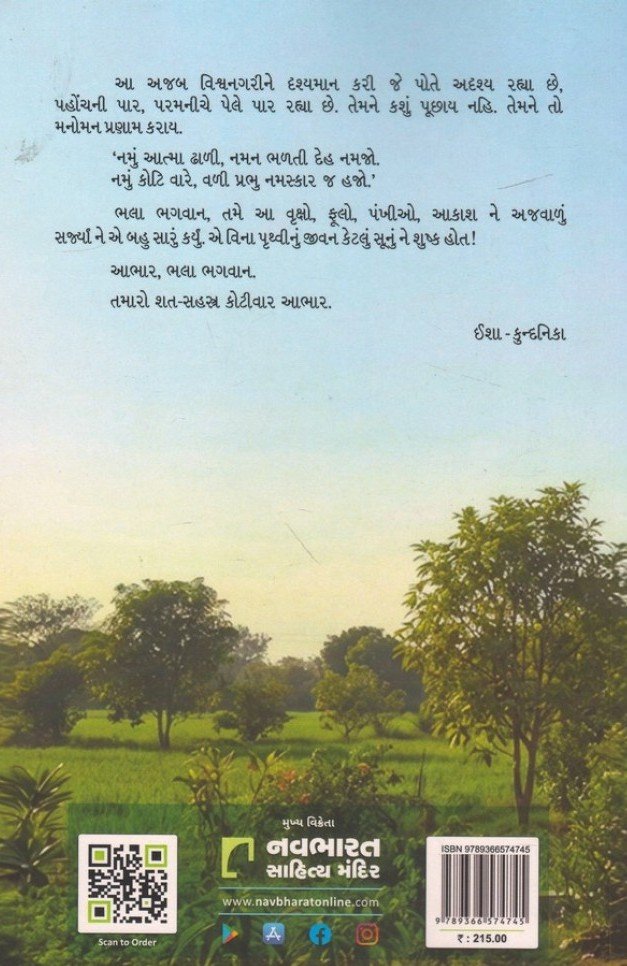 આ અજબ વિશ્વનગરીને દશ્યમાન કરી જે પોતે અદશ્ય રહ્યા છે,
પહોંચની પાર, પરમનીચે પેલે પાર રહ્યા છે. તેમને કશું પૂછાય નહિ. તેમને તો
મનોમન પ્રણામ કરાય.
‘નમું આત્મા ઢાળી, નમન ભળતી દેહ નમજો.
નમું કોટિ વારે, વળી પ્રભુ નમસ્કાર જ હજો.’
ભલા ભગવાન, તમે આ વૃક્ષો, ફૂલો, પંખીઓ, આકાશ ને અજવાળું
સર્જ્યાં ને એ બહુ સારું કર્યું. એ વિના પૃથ્વીનું જીવન કેટલું સૂનું ને શુષ્ક હોત!
આભાર, ભલા ભગવાન.
તમારો શત-સહસ્ત્ર કોટીવાર આભાર.
ઈશા - કુન્દનિકા
મુખ્ય વિક્રેતા
નવભારત
સાહિત્ય મંદિર
www.navbharatonline.com
Scan to Order
ISBN 9789366574745
9 789366 574745
₹ : 215.00